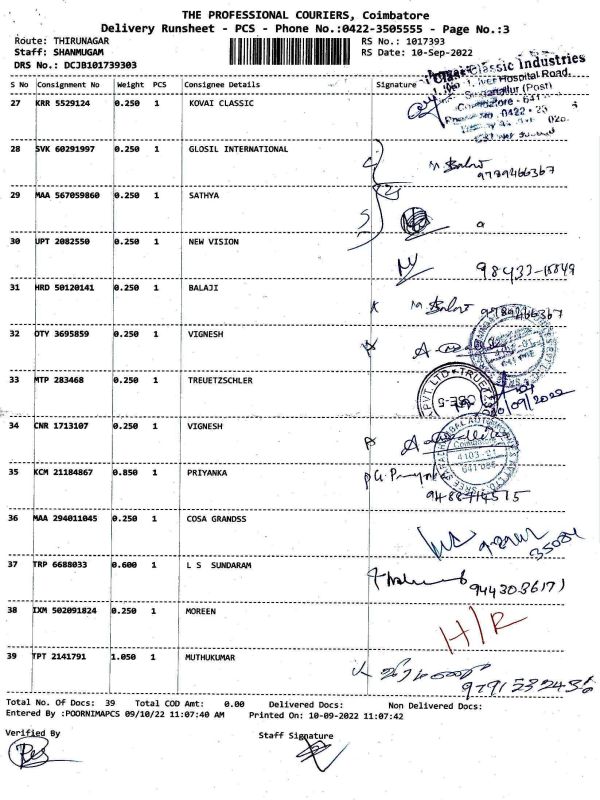 THE PROFESSIONAL COURIERS, Coimbatore
Delivery Runsheet - PCS - Phone No.:0422-3505555 - Page No.:3
Route: THIRUNAGAR RS No.: 1017393
Staff: SHANMUGAM RS Date: 10-Sep-2022
DRS No.: DCJB101739303
S No Consignment No Weight PCS Consignee Details Signature
Classic Industries
Hospital Road,
(Post)
27 KRR 5529124 0.250 1 KOVAI CLASSIC
28 SVK 60291997 0.250 1 GLOSIL INTERNATIONAL
9789466367
29 MAA 567059860 0.250 1 SATHYA
30 UPT 2082550 0.250 1 NEW VISION
98433-18849
31 HRD 50120141 0.250 1 BALAJI
9789466367
32 OTY 3695859 0.250 1 VIGNESH
33 MTP 283468 0.250 1 TREUETZSCHLER
PVT. LTD
10/09/2022
34 CNR 1713107 0.250 1 VIGNESH
Coimbatore
4103-21
35 KCM 21184867 0.850 1 PRIYANKA
36 MAA 294011045 0.250 1 COSA GRANDSS
37 TRP 6688033 0.600 1 L S SUNDARAM
9443036171
38 IXM 502091824 0.250 1 MOREEN
H/R
39 TPT 2141791 1.050 1 MUTHUKUMAR
9791532436
Total No. Of Docs: 39 Total COD Amt: 0.00 Delivered Docs: Non Delivered Docs:
Entered By :POORNIMAPCS 09/10/22 11:07:40 AM Printed On: 10-09-2022 11:07:42
Verified By Staff Signature